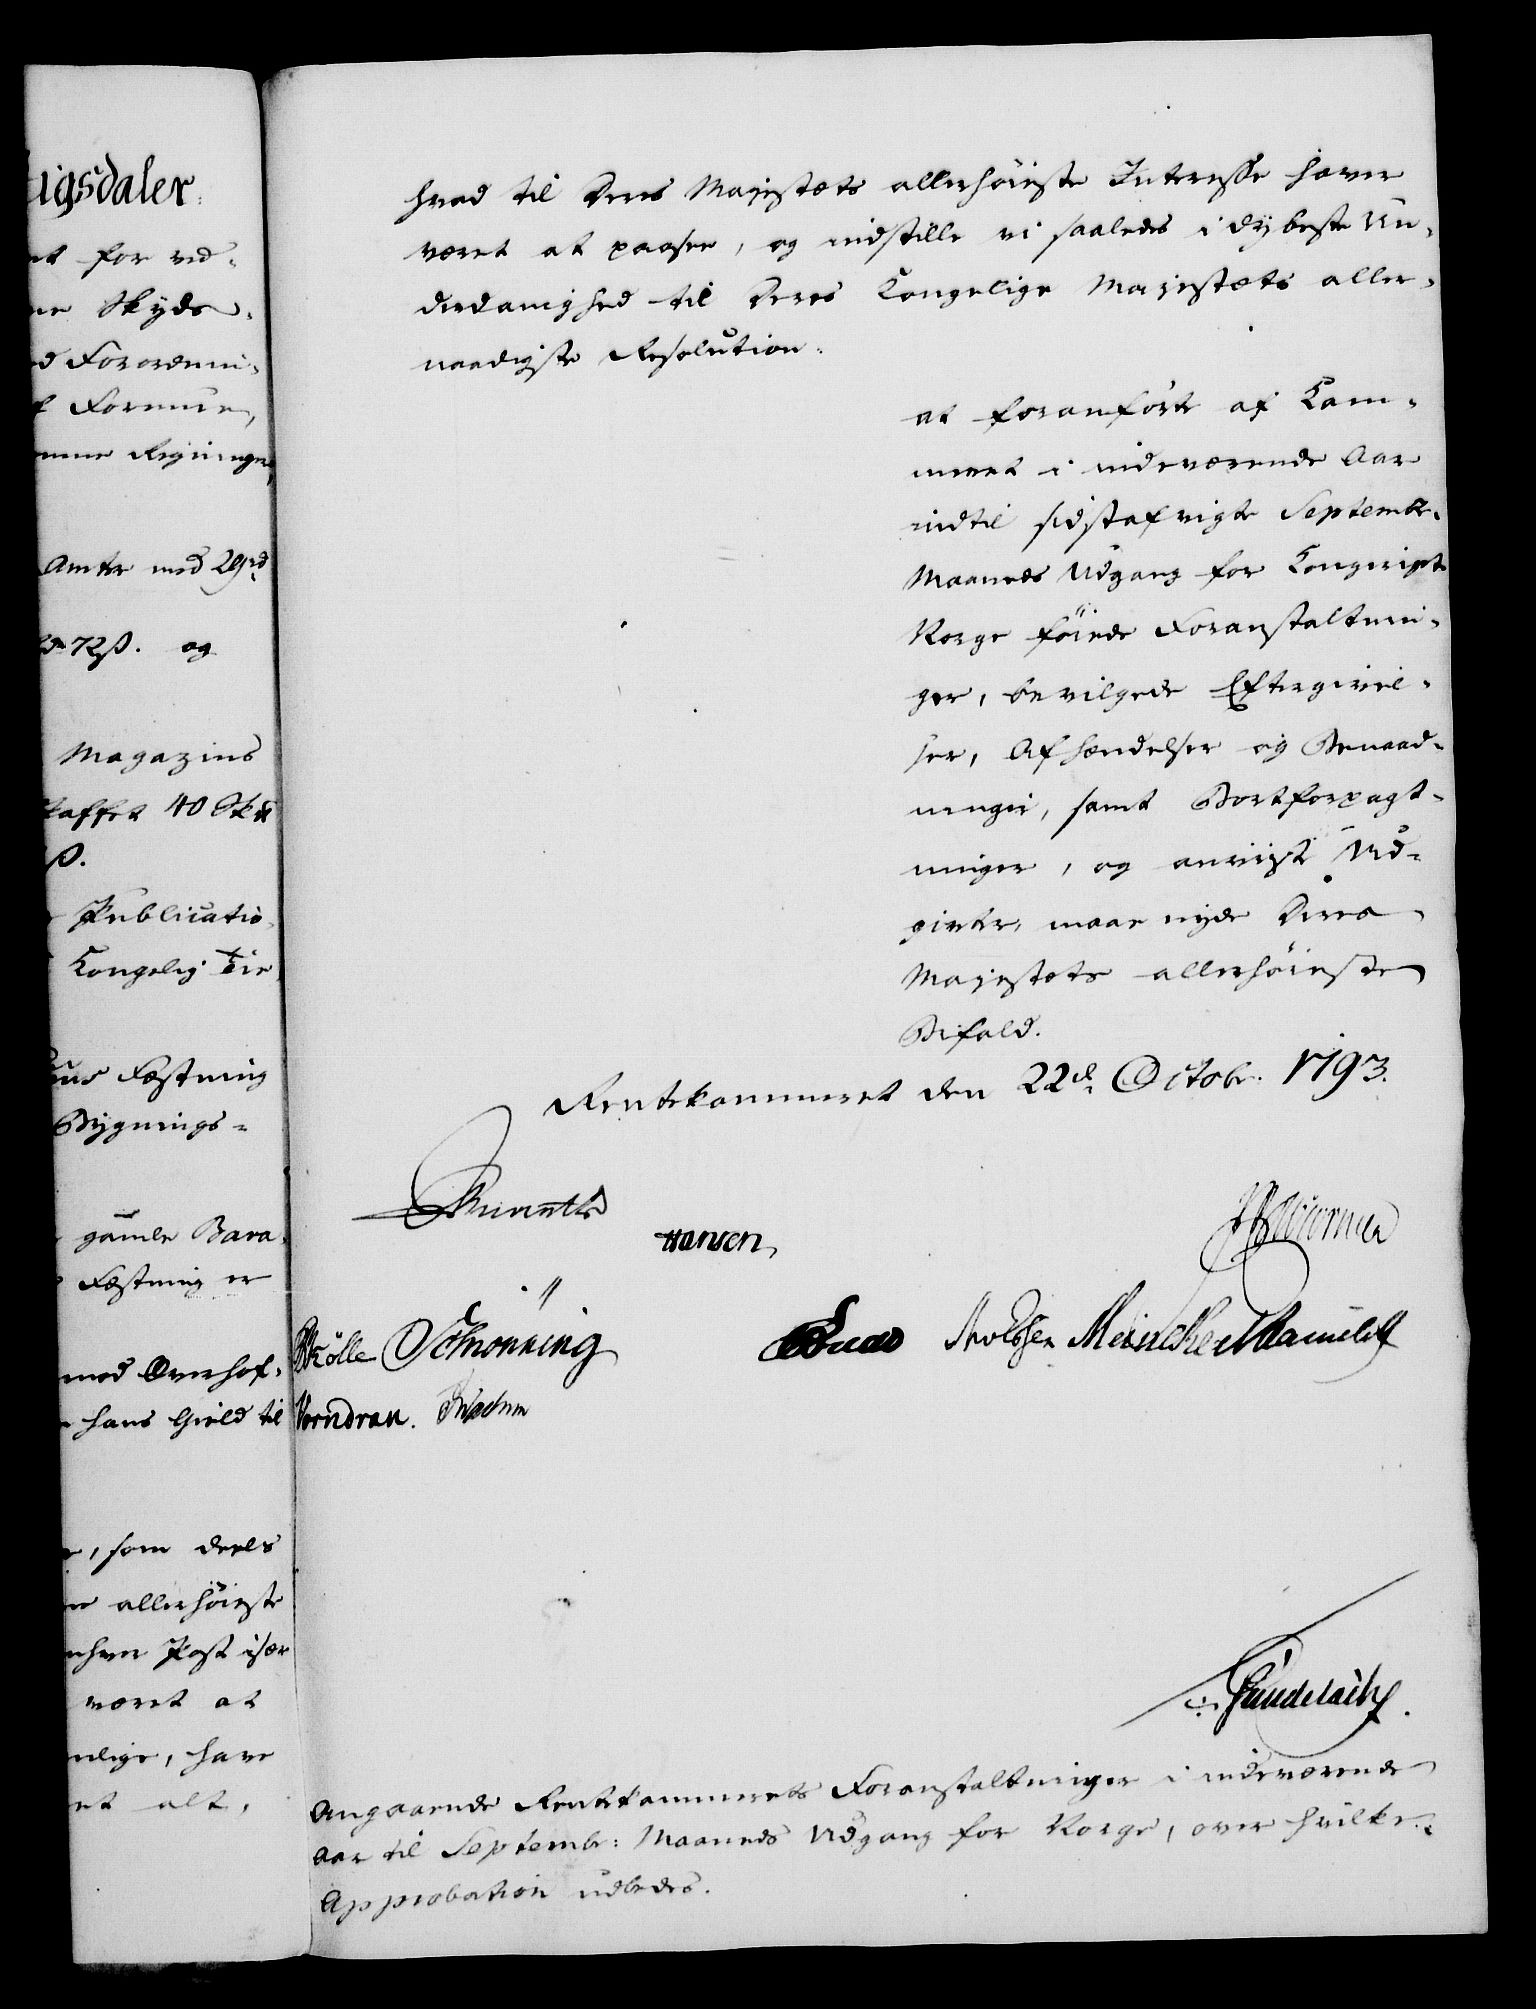 igsdaler.
for ved-
Skyds-
Forordnin-
Formue,
Regninger,
Amter med 29rd
72ß. og
Magazins
skaffet 40 Skd
ß.
Publicatio-
Kongelig Tie
Fæstning
Bygnings-
gamle Bara-
Fæstning er
med Overhof-
hans Gield til
, som deels
allerhöieste
enhver Post især
været at
, have
alt,
hvad til Deres Majestæts allerhöieste Interesse haver
været at paasee, og indstille vi saaledes i dybeste Un-
derdanighed til Deres Kongelige Majestæts aller-
naadigste Resolution.
at foranförte af Kam-
meret i indeværende Aar
indtil sidstafvigte Septembr.
Maaneds Udgang for Kongeriget
Norge föiede Foranstaltnin-
ger, bevilgede Eftergivel-
ser, Afhændelser og Benaad-
ninger, samt Bortforpagt-
ninger, og anviiste Ud-
givter, maae nyde Deres
Majestæts allerhöieste
Bifald.
Rentekammeret den 22de Octobr: 1793.
Hansen
Wormer
Krölle Schönning
Arvesen Meincke
Vorndran.
Gundelach.
Angaaende Rentekammerets Foranstaltninger i indeværende
Aar til Septembr: Maaneds Udgang for Norge, over hvilke
Approbation udbedes.